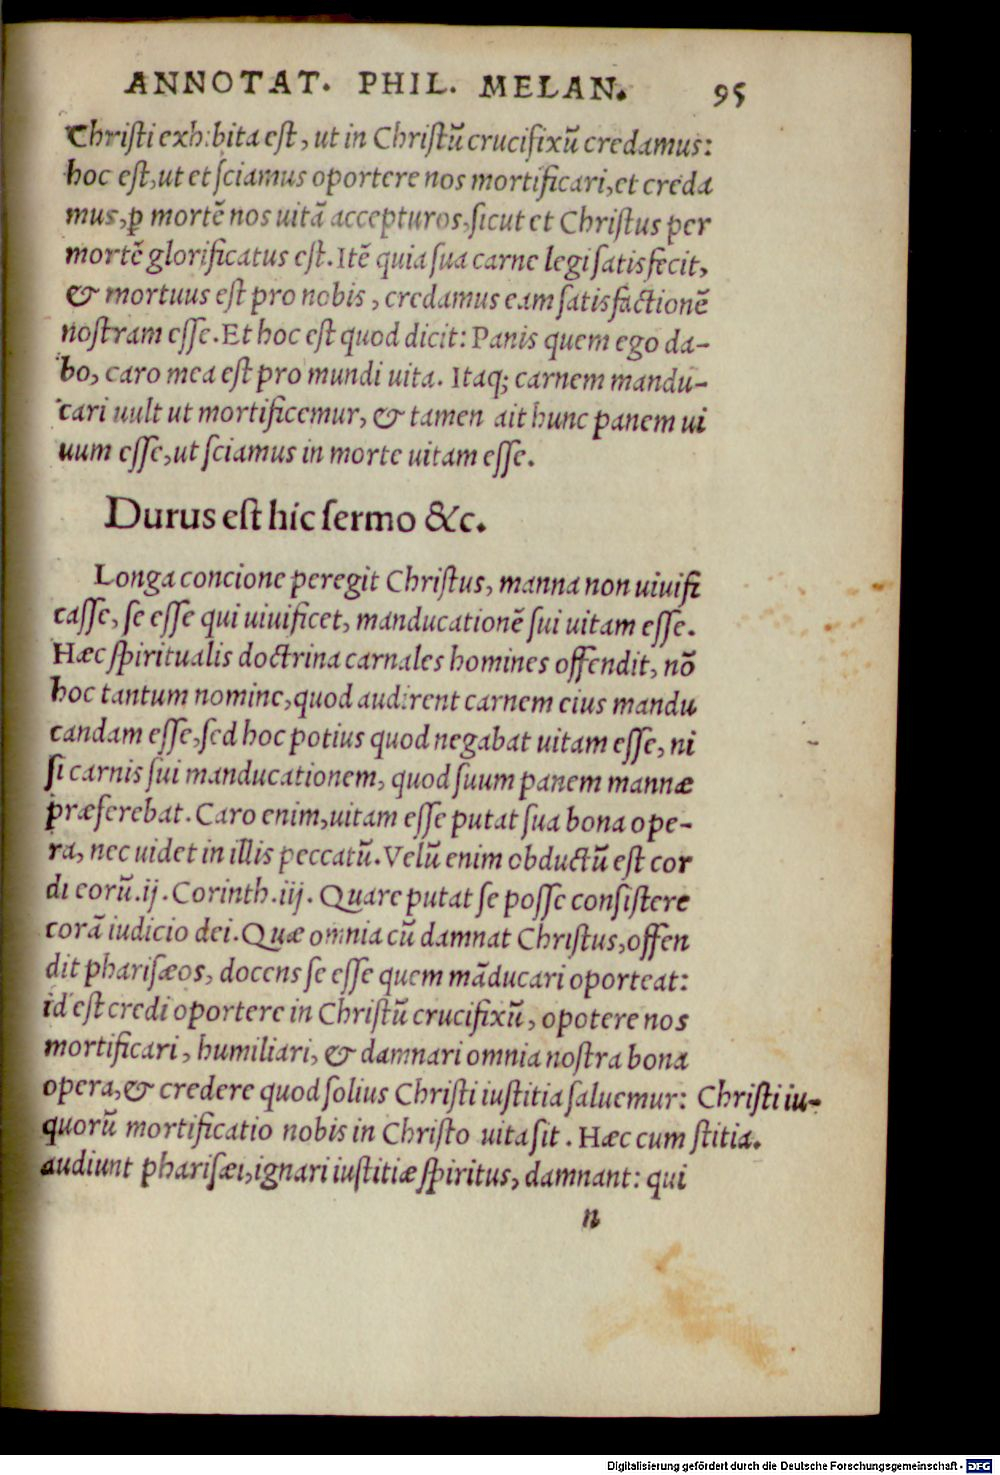 ANNOTAT. PHIL. MELAN. 95
Chriſti exhibita eſt, ut in Chriſtū crucifixū credamus:
hoc eſt, ut et ſciamus oportere nos mortificari, et creda
mus, ꝑ mortē nos uitā accepturos, ſicut et Chriſtus per
mortē glorificatus eſt. Itē quia ſua carne legi ſatisfecit,
& mortuus eſt pro nobis, credamus eam ſatisfactionē
noſtram eſſe. Et hoc eſt quod dicit: Panis quem ego da-
bo, caro mea eſt pro mundi uita. Itaq; carnem mandu-
cari uult ut mortificemur, & tamen ait hunc panem ui
uum eſſe, ut ſciamus in morte uitam eſſe.
Durus eſt hic ſermo &c.
Longa concione peregit Chriſtus, manna non uiuifi
caſſe, ſe eſſe qui uiuificet, manducationē ſui uitam eſſe.
Hæc ſpiritualis doctrina carnales homines offendit, nō
hoc tantum nomine, quod audirent carnem eius mandu
candam eſſe, ſed hoc potius quod negabat uitam eſſe, ni
ſi carnis ſui manducationem, quod ſuum panem mannæ
præferebat. Caro enim, uitam eſſe putat ſua bona ope-
ra, nec uidet in illis peccatū. Velū enim obductū eſt cor
di eorū .ij. Corinth. iij. Quare putat ſe poſſe conſiſtere
corā iudicio dei. Quæ omnia cū damnat Chriſtus, offen
dit phariſæos, docens ſe eſſe quem māducari oporteat:
id eſt credi oportere in Chriſtū crucifixū, opotere nos
mortificari, humiliari, & damnari omnia noſtra bona
opera, & credere quod ſolius Chriſti iuſtitia ſaluemur: Chriſti iu-
quorū mortificatio nobis in Chriſto uita ſit. Hæc cum ſtitia.
audiunt phariſæi, ignari iuſtitiæ ſpiritus, damnant: qui
n
Digitalisierung gefördert durch die Deutsche Forschungsgemeinschaft - DFG